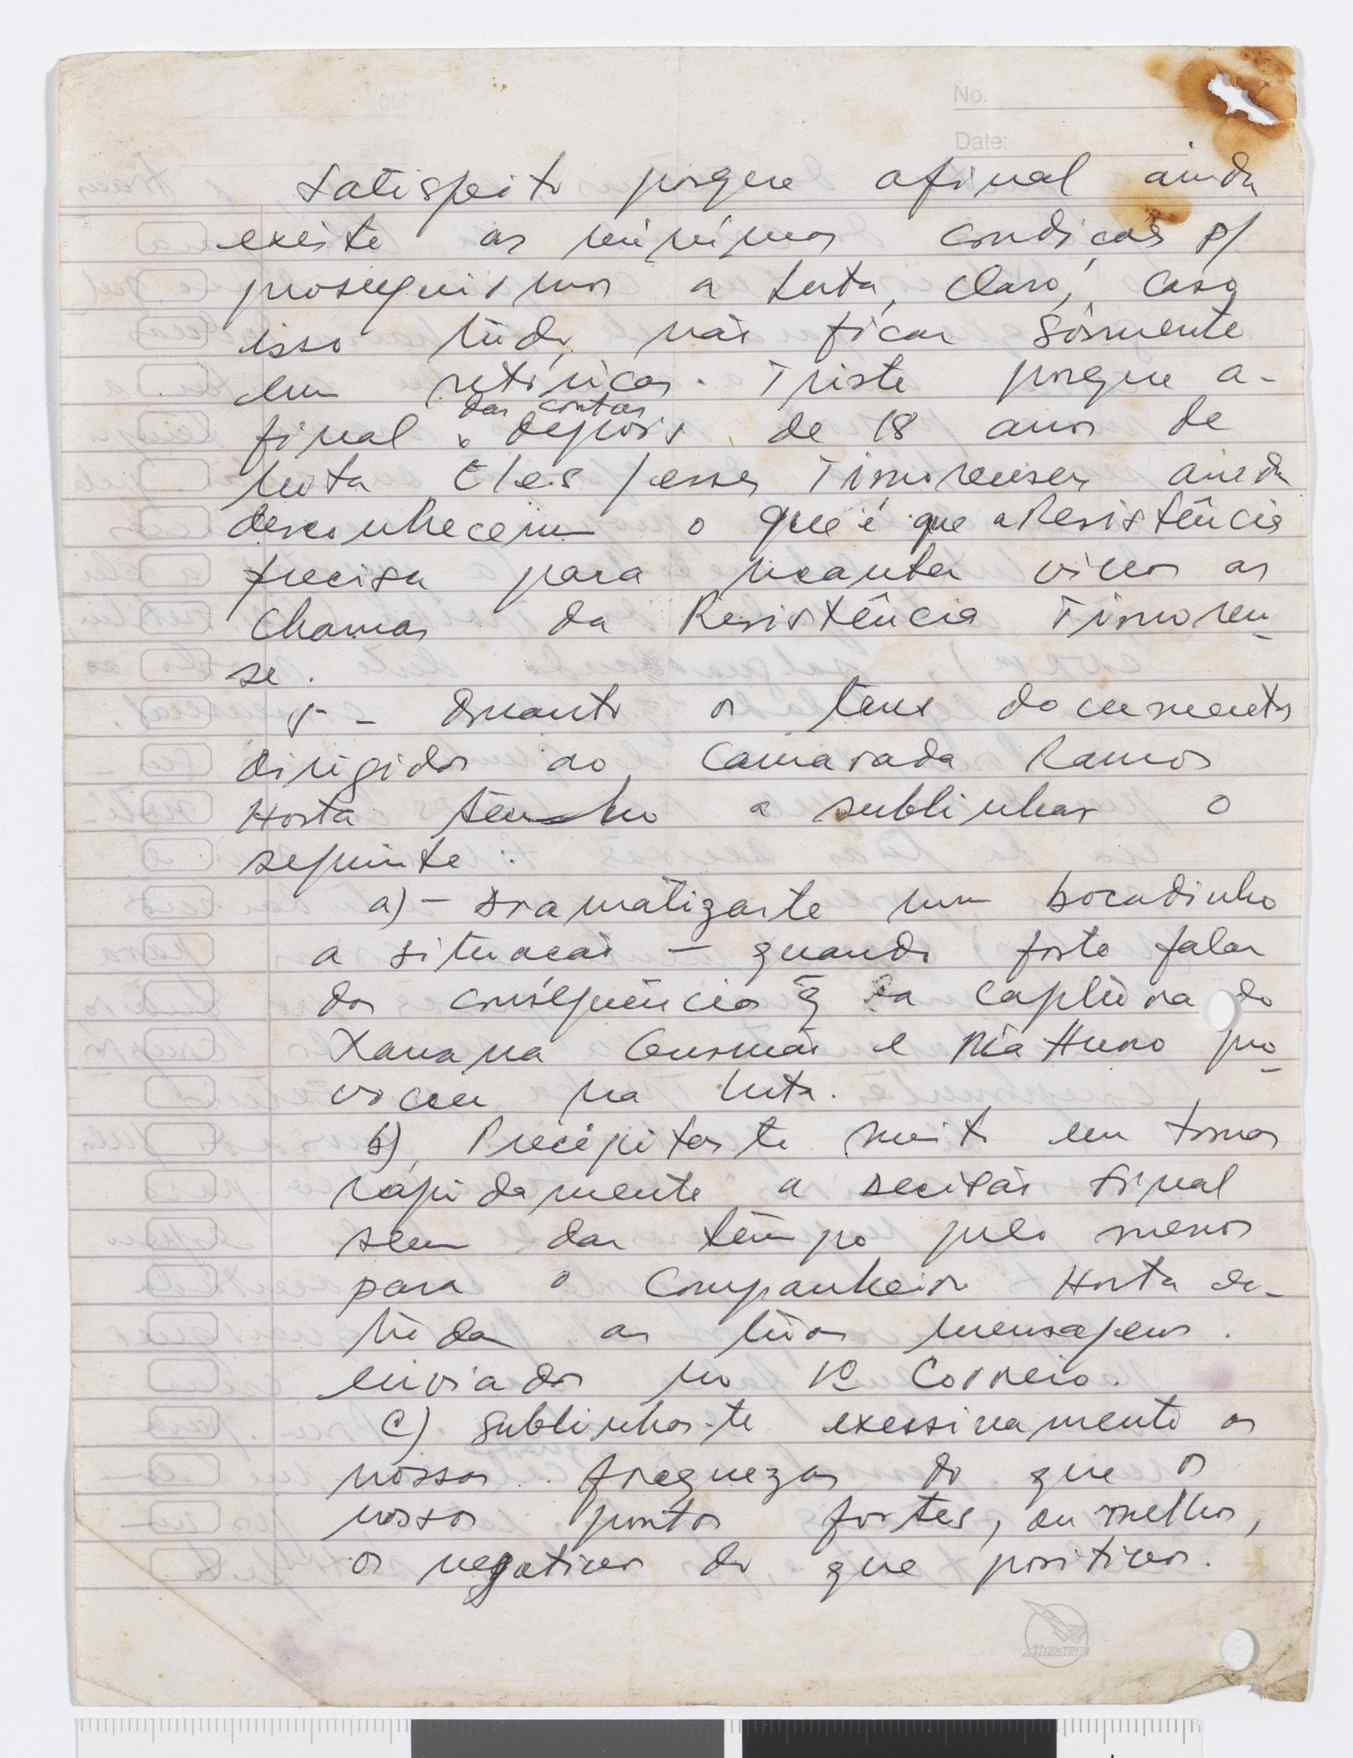 No.
Date:
Satispeito porque afinal ainda
existe as mínimas condições p/
proseguirmos a luta, claro, caso
isso tudo, não ficar sómente
em retóricas. Triste porque a-
das contas
final depois de 18 anos de
luta Eles/esses Timorenses ainda
desconhecem o que é que a Resistência
precisa para manter vivos as
Chamas da Resistência Timoren-
se.
5- - Quanto os teus documentos
dirigidos ao Camarada Ramos
Horta tenho a sublinhar o
seguinte:
a) - Dramatizaste num bocadinho
a situacão - quando foste falar
das conséquências q̃ da captura do
Xanana Gusmão e Ma Huno pro-
vocou na luta.
b) Precipitaste muito em tomar
rápidamente a decisão final
sem dar tempo pelo menos
para o Companheiro Horta es-
tudar as tuas mensagens.
enviadas no 1º Correio.
C) Sublinhas-te exessivamente as
nossas fraquezas do que os
nossos pontos fortes, ou melhor,
os negativos do que positivos.